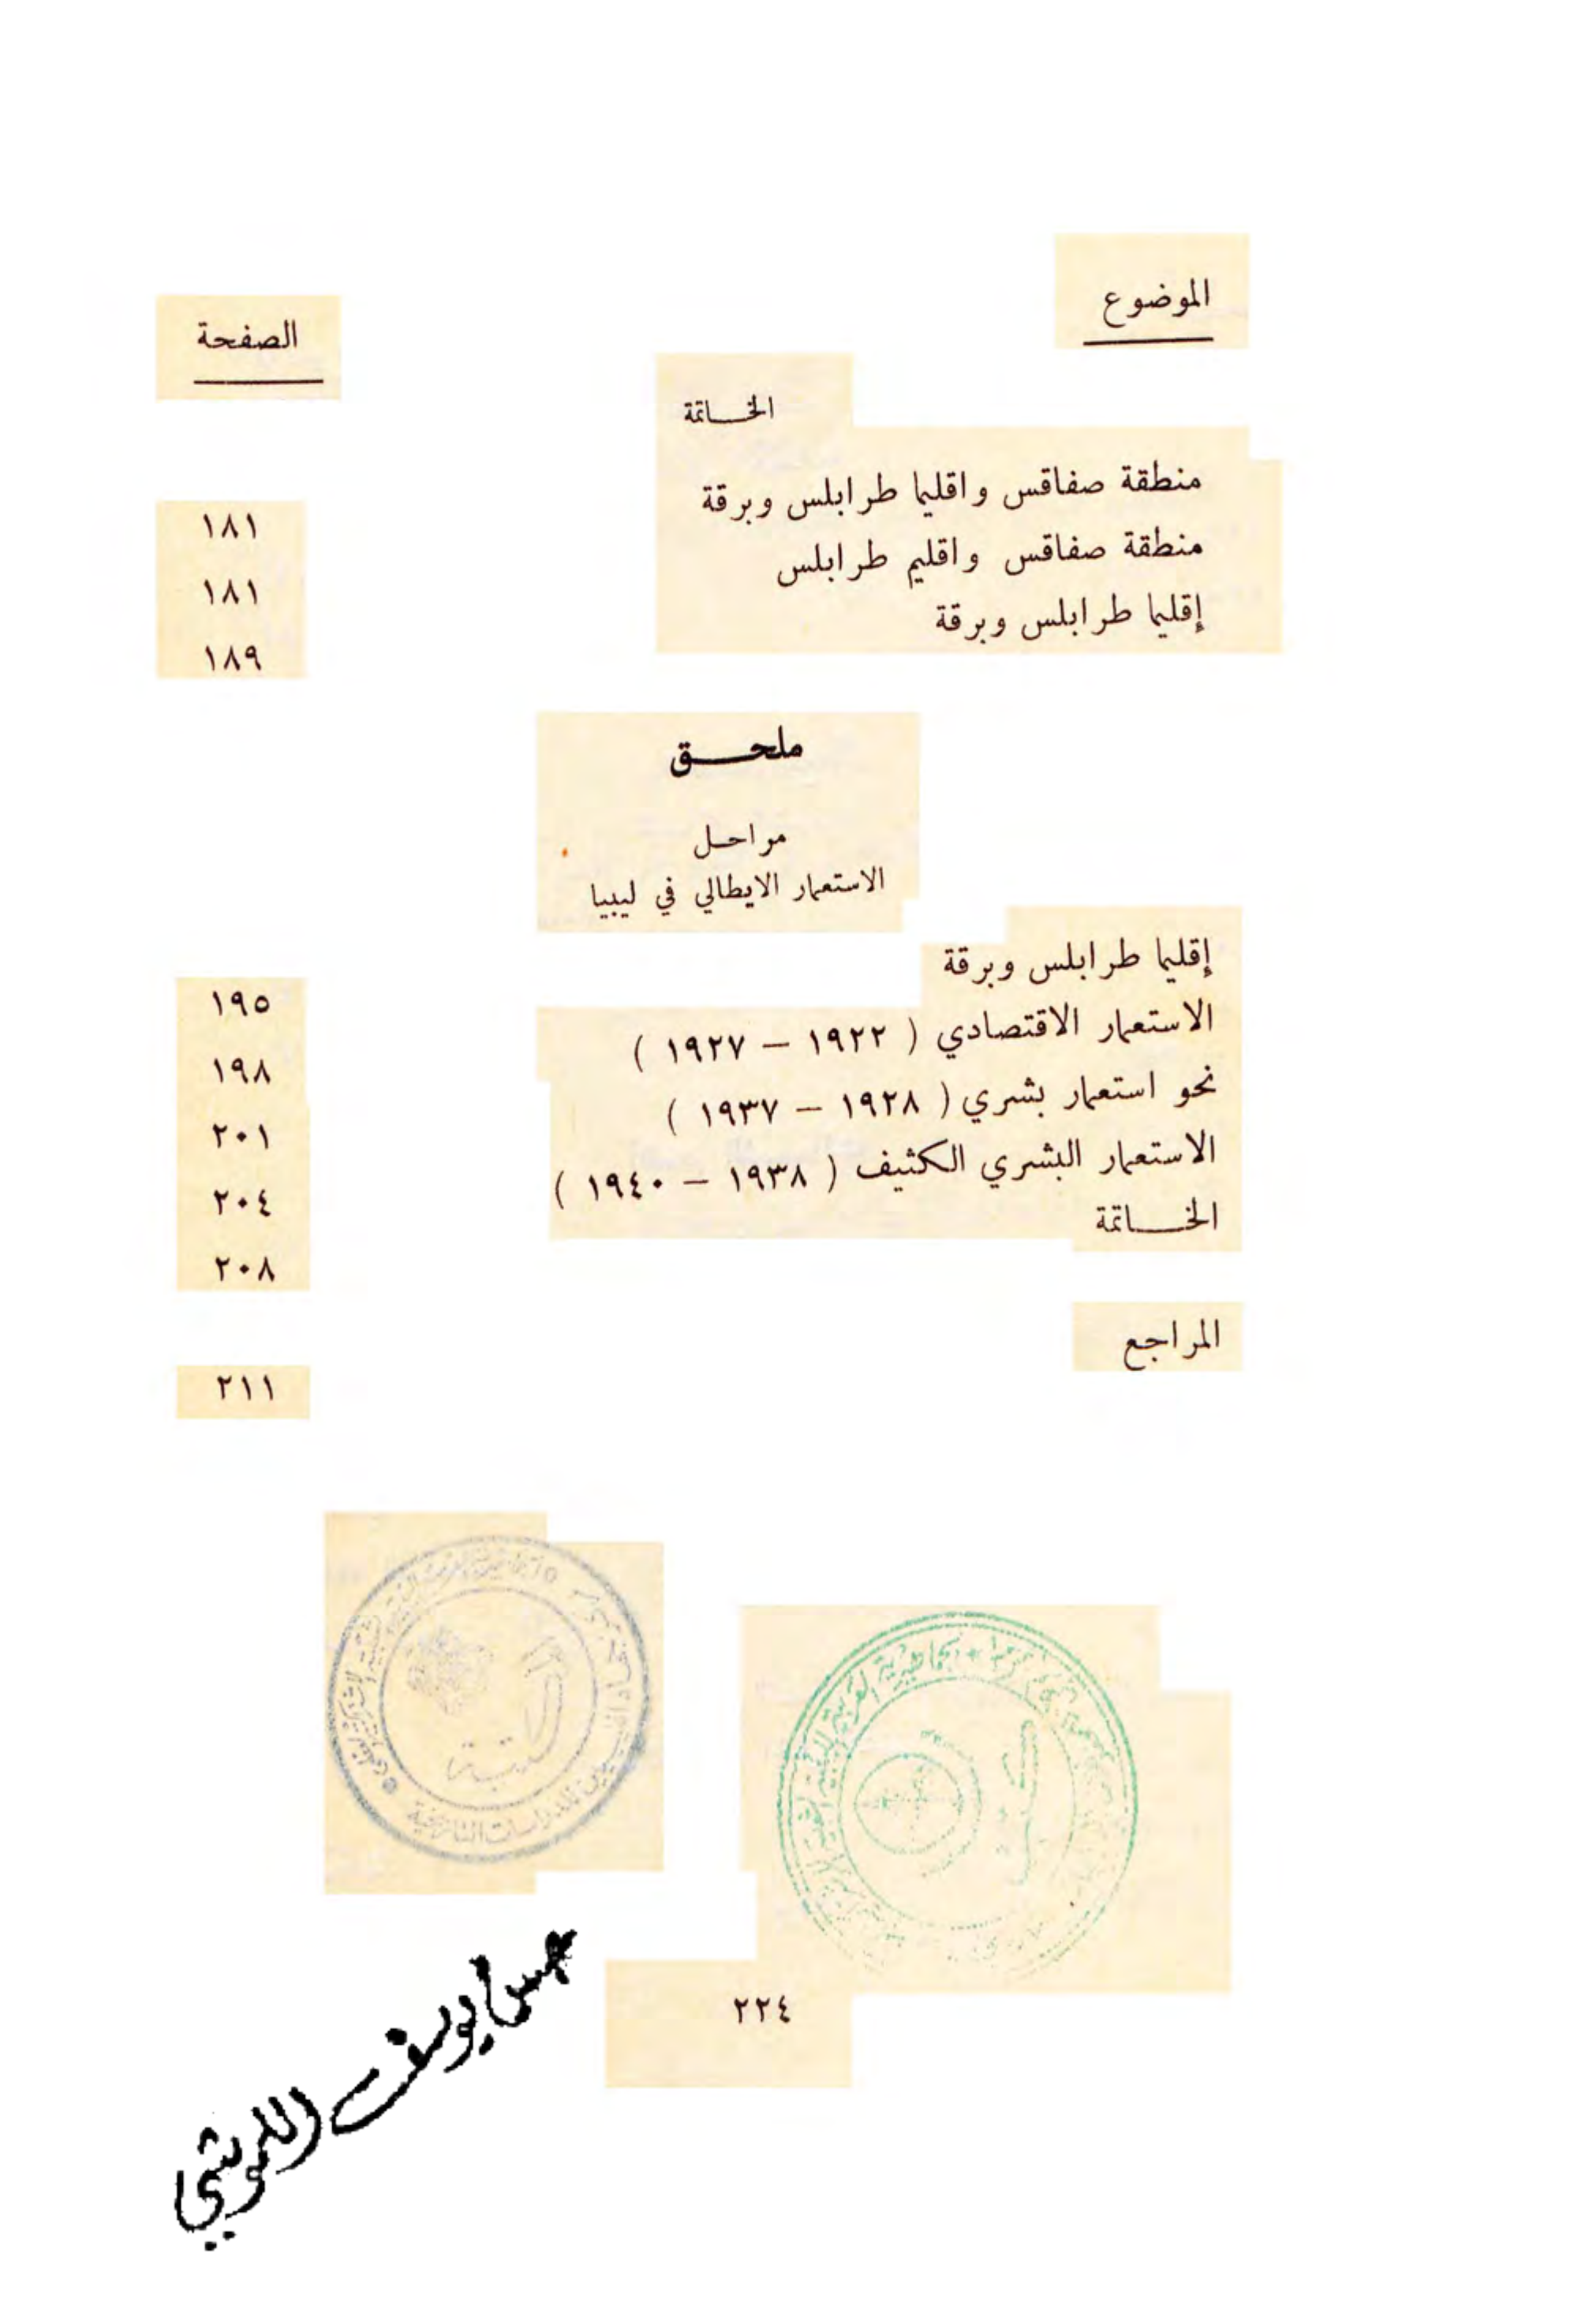 الموضوع
الصفحة
الخـــاتمة
منطقة صفاقس واقليما طرابلس وبرقة ١٨١
منطقة صفاقس واقليم طرابلس ١٨١
إقليما طرابلس وبرقة ١٨٩
ملحـــق
مراحل
الاستعمار الايطالي في ليبيا
إقليما طرابلس وبرقة ١٩٥
الاستعمار الاقتصادي ( ١٩٢٢ – ١٩٢٧ ) ١٩٨
نحو استعمار بشري ( ١٩٢٨ – ١٩٣٧ ) ٢٠١
الاستعمار البشري الكثيف ( ١٩٣٨ – ١٩٤٠ ) ٢٠٤
الخـــاتمة ٢٠٨
المراجع ٢١١
للدراسات التاريخية
المكتبة
الجماهيرية العربية الليبية
٢٢٤
يوسف